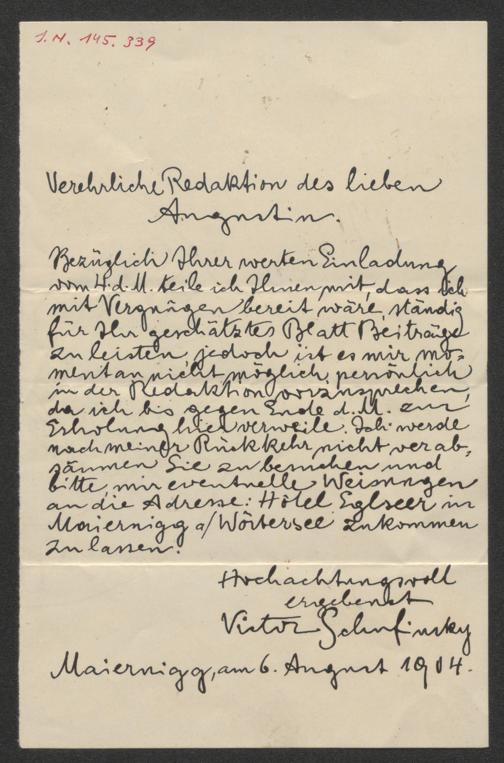 J. N. 145.339
Verehrliche Redaktion des lieben
Augustin.
Bezüglich Ihrer werten Einladung
vom 4. d. M. teile ich Ihnen mit, dass ich
mit Vergnügen bereit wäre, ständig
für Ihr geschätztes Blatt Beiträge
zu leisten, jedoch ist es mir mo-
mentan nicht möglich, persönlich
in der Redaktion vorzusprechen,
da ich bis gegen Ende d. M. zur
Erholung hier verweile. Ich werde
nach meiner Rückkehr nicht verab-
säumen Sie zu besuchen und
bitte, mir eventuelle Weisungen
an die Adresse: Hôtel Eglseer in
Maiernigg a/Wörtersee zukommen
zu lassen.
Hochachtungsvoll
ergebenst
Victor Schufinsky
Maiernigg, am 6. August 1904.